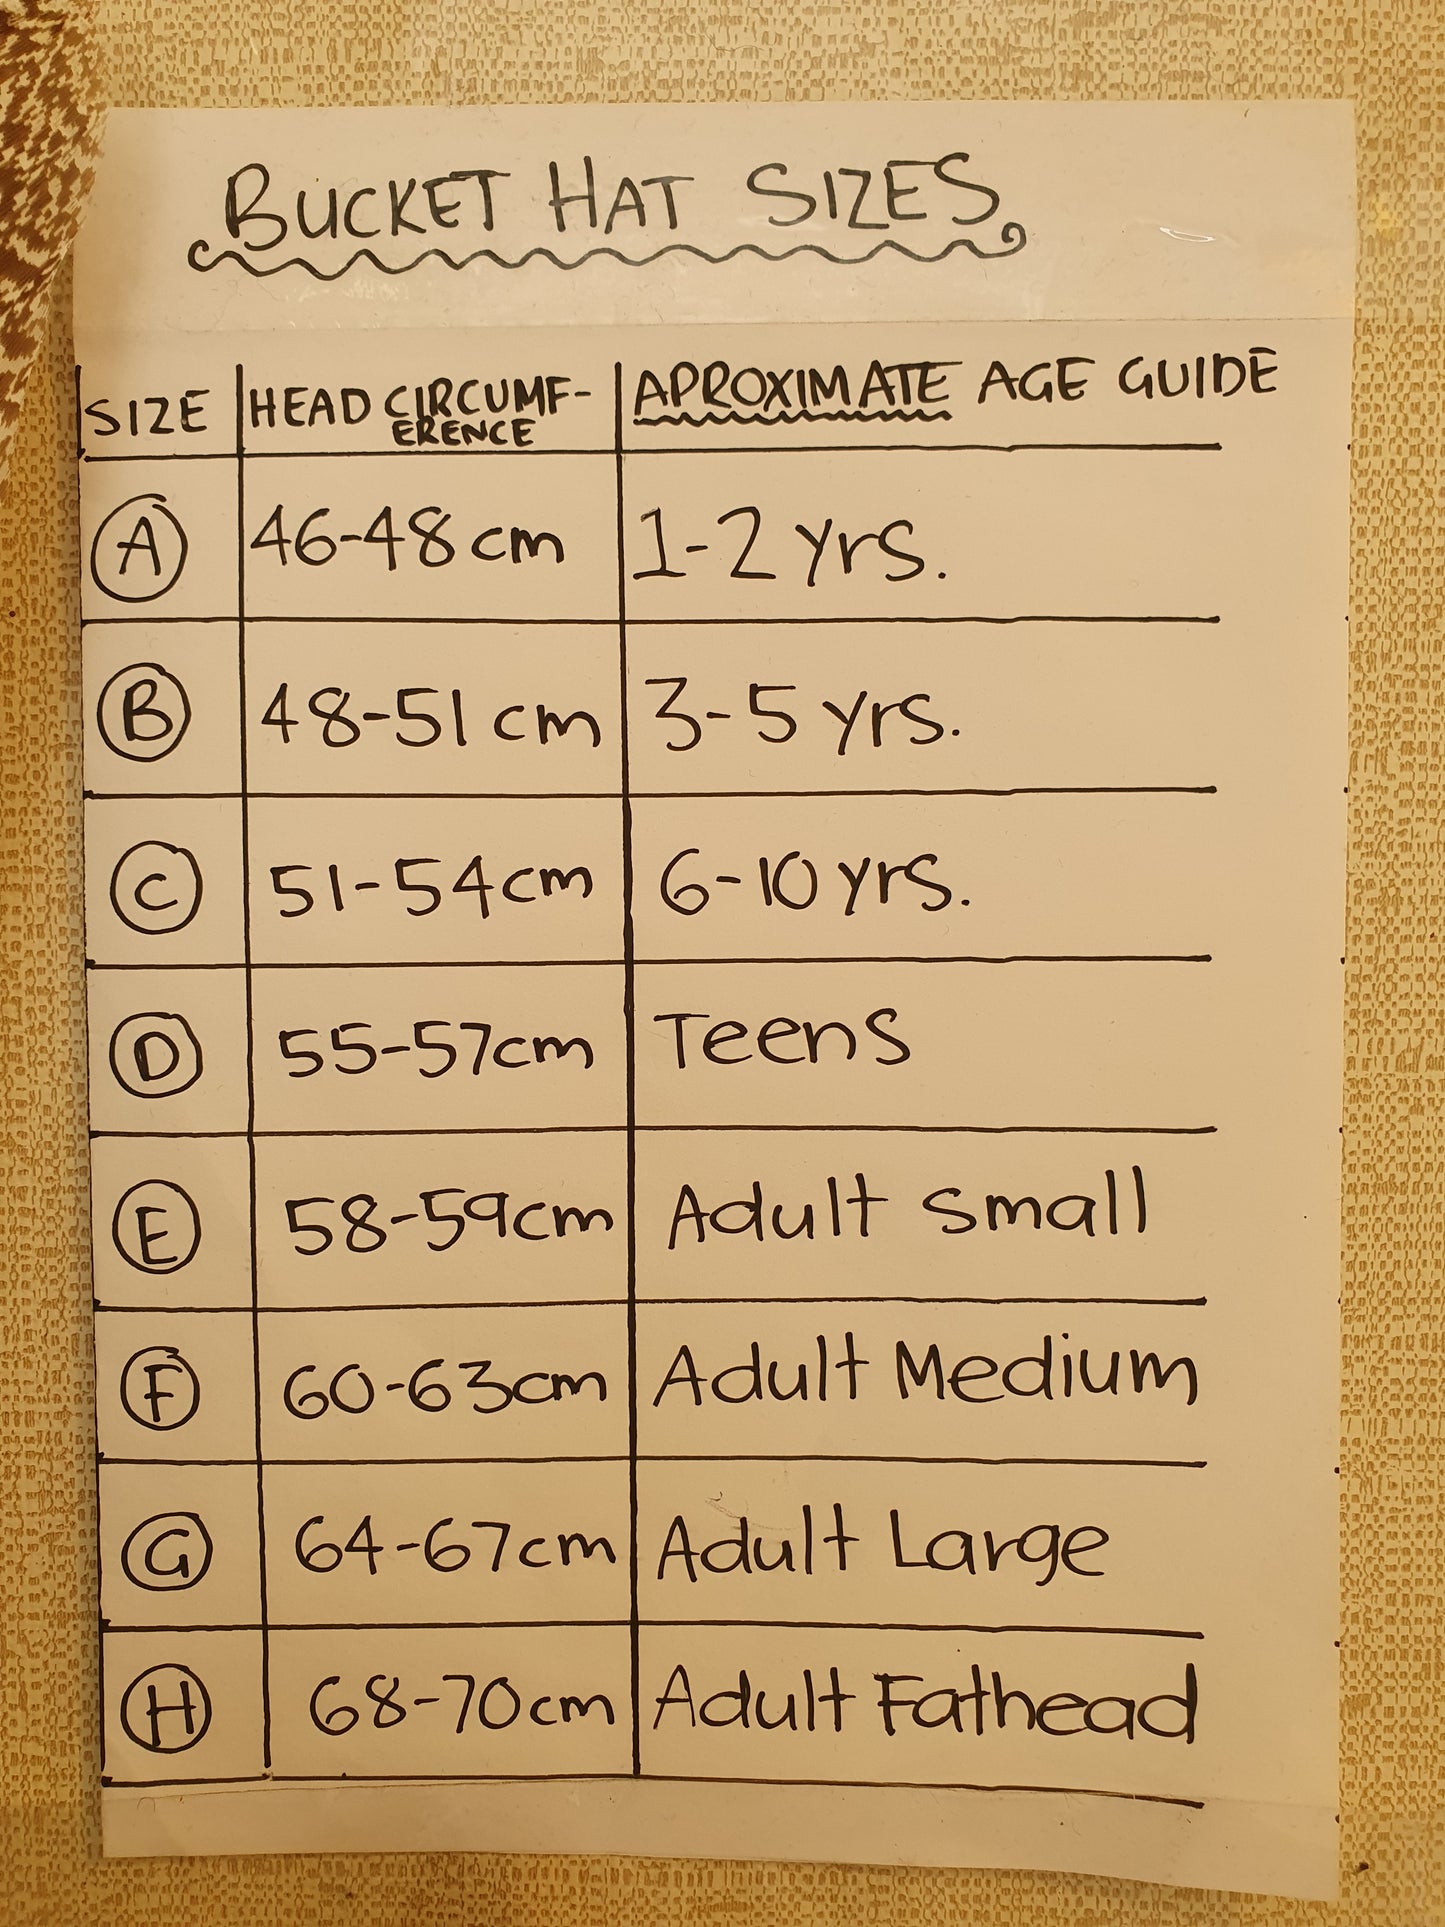 BUCKET HAT SIZES
SIZE HEAD CIRCUMF-
ERENCE APROXIMATE AGE GUIDE
A 46-48 cm 1-2 yrs.
B 48-51 cm 3-5 yrs.
C 51-54cm 6-10 yrs.
D 55-57cm Teens
E 58-59cm Adult Small
F 60-63cm Adult Medium
G 64-67cm Adult Large
H 68-70cm Adult Fathead